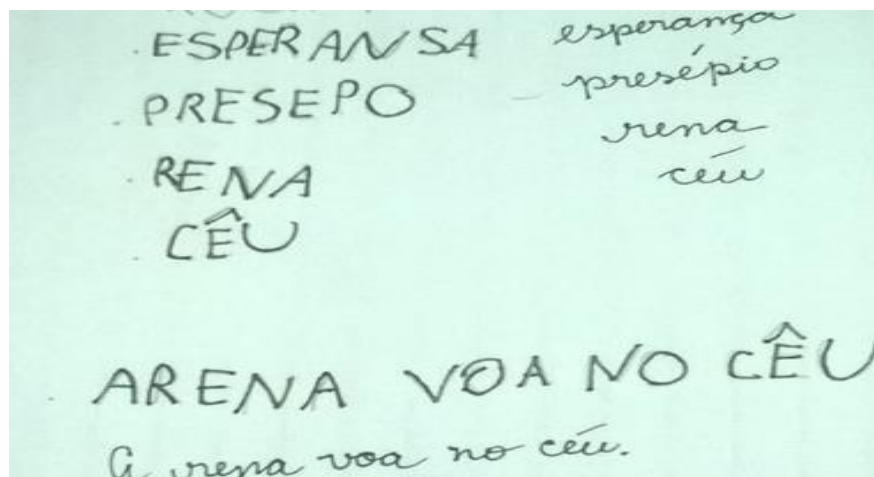 ESPERANSA esperança
PRESEPO presépio
RENA rena
CÊU céu
ARENA VOA NO CÊU
A rena voa no céu.